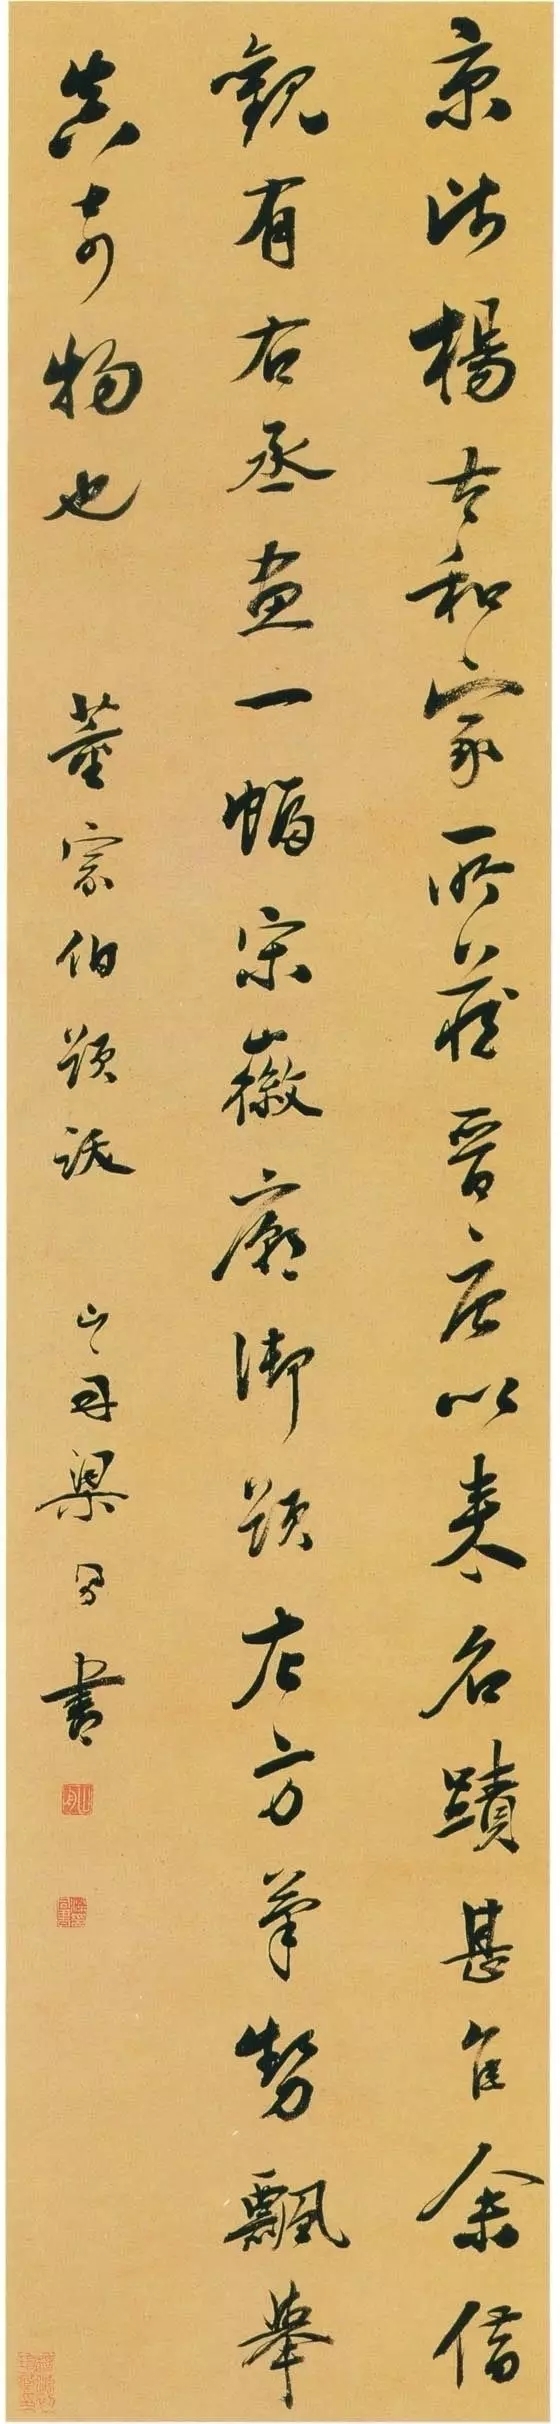 京師楊太和家所藏晉唐以來名蹟甚佳余借
觀有右丞畫一幅宋徽廟御題左方筆勢飄舉
真奇物也 董宗伯題跋 山舟梁同書